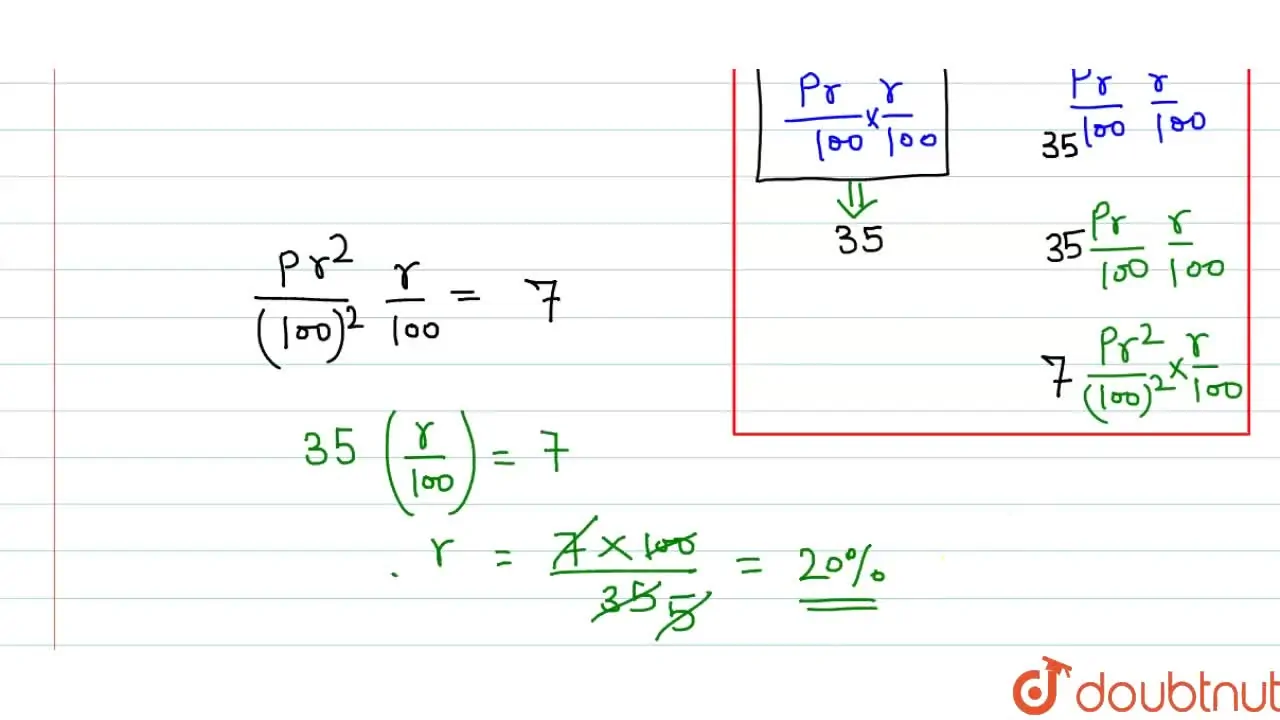 Pr/100 × r/100
35
Pr/100 r/100
35
Pr/100 r/100
35
Pr²/(100)² × r/100
7
Pr²/(100)² r/100 = 7
35 (r/100) = 7
r = 7 × 100 / 35 5 = 20%
doubtnut